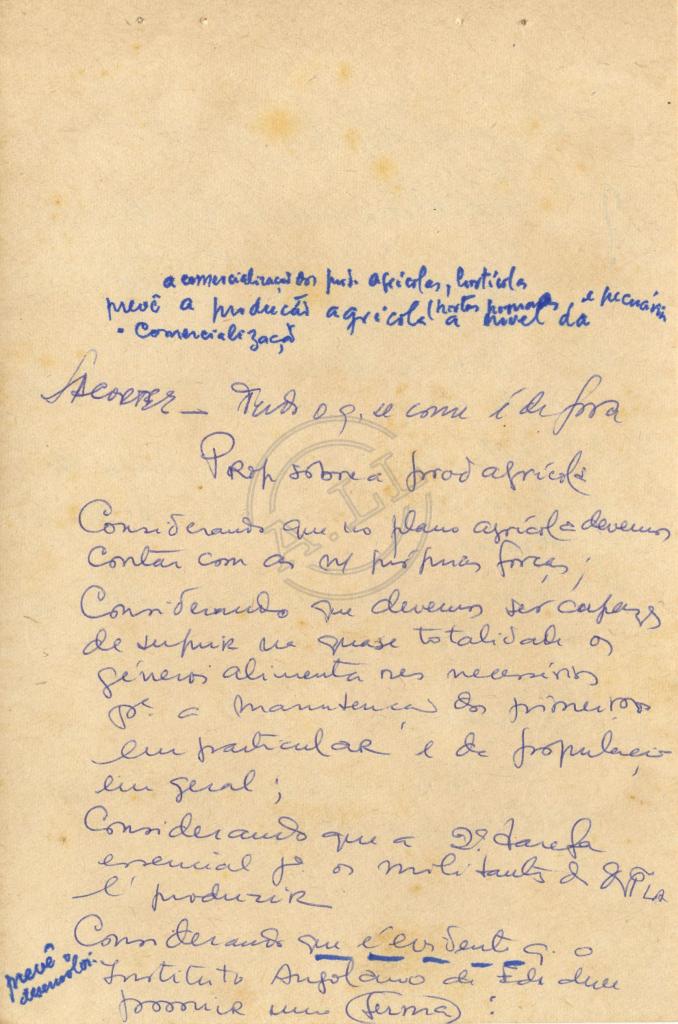 a comercialização dos prod. agrícolas, hortícolas
prevê a produção agrícola (hortas pomares e pecuária
a nível da
• Comercialização
– Tudo o q. se come é de fora
Prop sobre a prod agrícola
A.LI
Considerando que no plano agrícola devemos
contar com as n/ próprias forças;
Considerando que devemos ser capazes
de suprir na quase totalidade os
géneros alimentares necessários
pª a manutenção dos pioneiros
em particular e da população
em geral;
Considerando que a 2ª tarefa
essencial pª os militantes do MPLA
é produzir
Considerando que é evidente q. o
prevê o
desenvolvi.
Instituto Angolano de Edu deve
possuir uma (Ferma) :